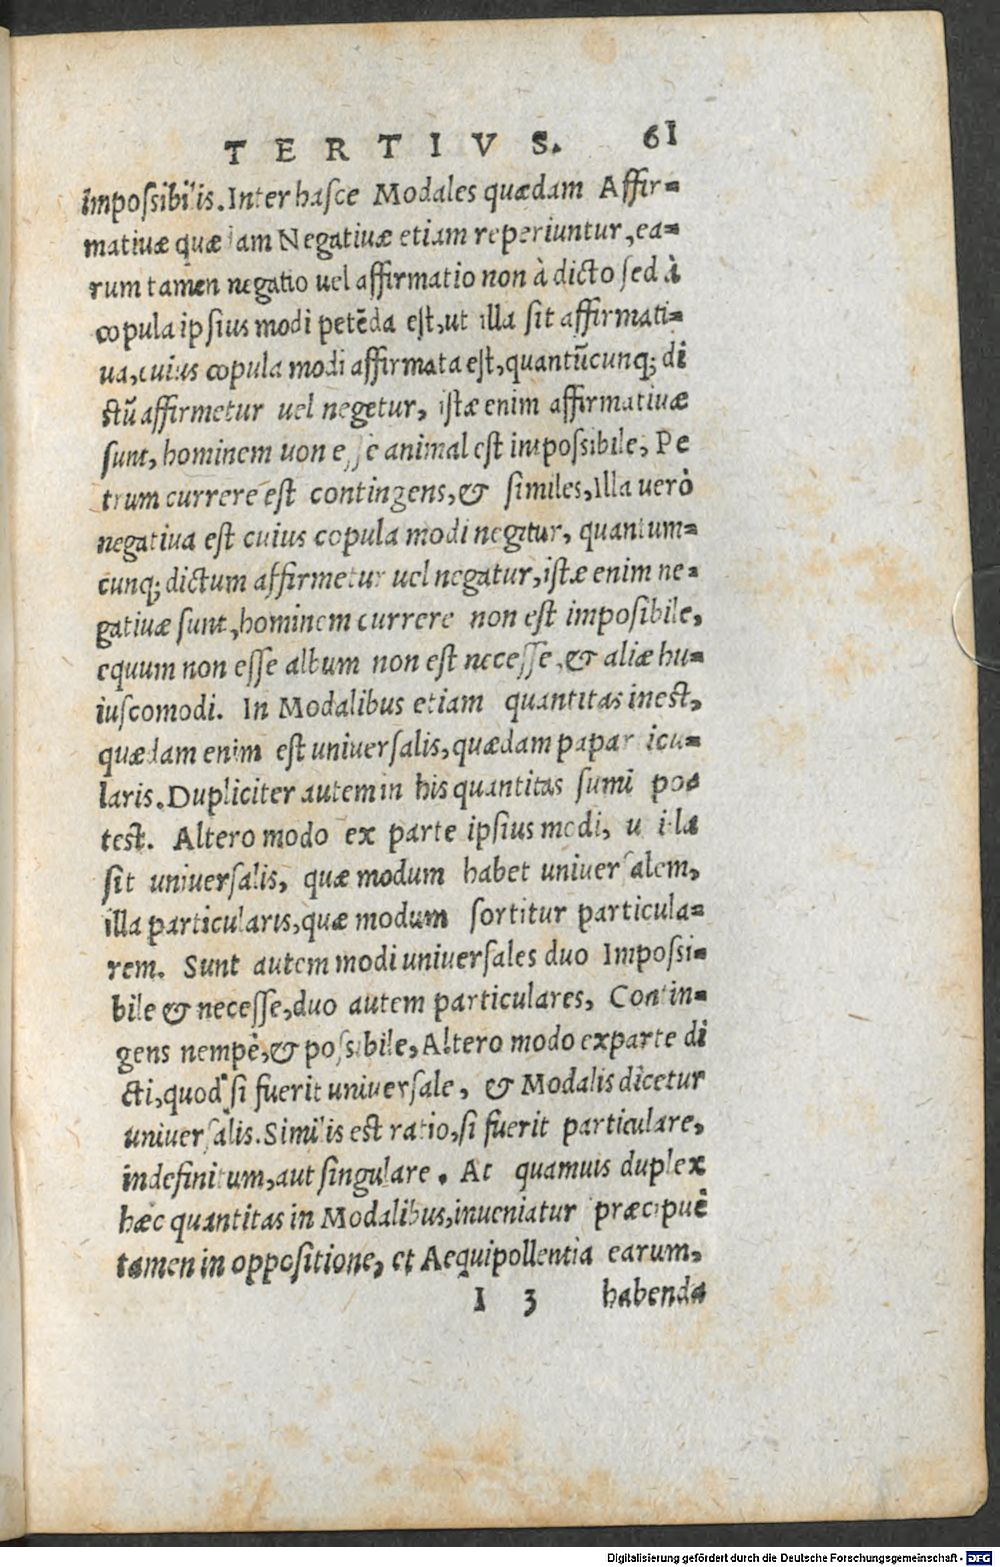 TERTIVS. 61
impoſsibilis. Inter haſce Modales quædam Affir=
matiuæ quædam Negatiuæ etiam reperiuntur, ea=
rum tamen negatio uel affirmatio non à dicto ſed à
copula ipſius modi petēda eſt, ut illa ſit affirmati=
ua, cuius copula modi affirmata eſt, quantūcunq; di
ctū affirmetur uel negetur, iſtæ enim affirmatiuæ
ſunt, hominem uon eſſe animal eſt impoſsibile, Pe
trum currere eſt contingens, & ſimiles, Illa uerò
negatiua eſt cuius copula modi negatur, quantum=
cunq; dictum affirmetur uel negatur, iſtæ enim ne=
gatiuæ ſunt, hominem currere non eſt impoſibile,
equum non eſſe album non eſt neceſſe, & aliæ hu=
iuſcomodi. In Modalibus etiam quantitas ineſt,
quædam enim eſt uniuerſalis, quædam papar icu=
laris. Dupliciter autem in his quantitas ſumi po=
teſt. Altero modo ex parte ipſius modi, u illa
ſit uniuerſalis, quæ modum habet uniuerſalem,
illa particularis, quæ modum ſortitur particula=
rem. Sunt autem modi uniuerſales duo Impoſsi=
bile & neceſſe, duo autem particulares, Contin=
gens nempè, & poſsibile, Altero modo ex parte di
cti, quod ſi fuerit uniuerſale, & Modalis dicetur
uniuerſalis. Similis eſt ratio, ſi fuerit particulare,
indefinitum, aut ſingulare. At quamuis duplex
hæc quantitas in Modalibus, inueniatur præcipuè
tamen in oppoſitione, et Aequipollentia earum,
I 3 habenda
Digitalisierung gefördert durch die Deutsche Forschungsgemeinschaft - DFG